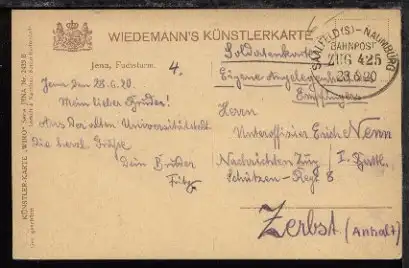 WIEDEMANN'S KÜNSTLERKARTE
Jena, Fuchsturm.
4.
Jena den 23.6.20.
Mein lieber Bruder!
Aus der alten Universitätsstadt
Die herzl. Grüße
Dein Bruder
Fritz
SAALFELD(S)-NAUMBURG
BAHNPOST
ZUG 425
23.6.20
Soldatenkarte
Eigene Angelegenheit
d. Empfängers
Herrn
Unteroffizier Erich Nenn
Nachrichten Zug I. Battl.
Schützen-Regt 8
Zerbst (Anhalt)
KÜNSTLER-KARTE "WIRO" Serie JENA Nr. 2439 B